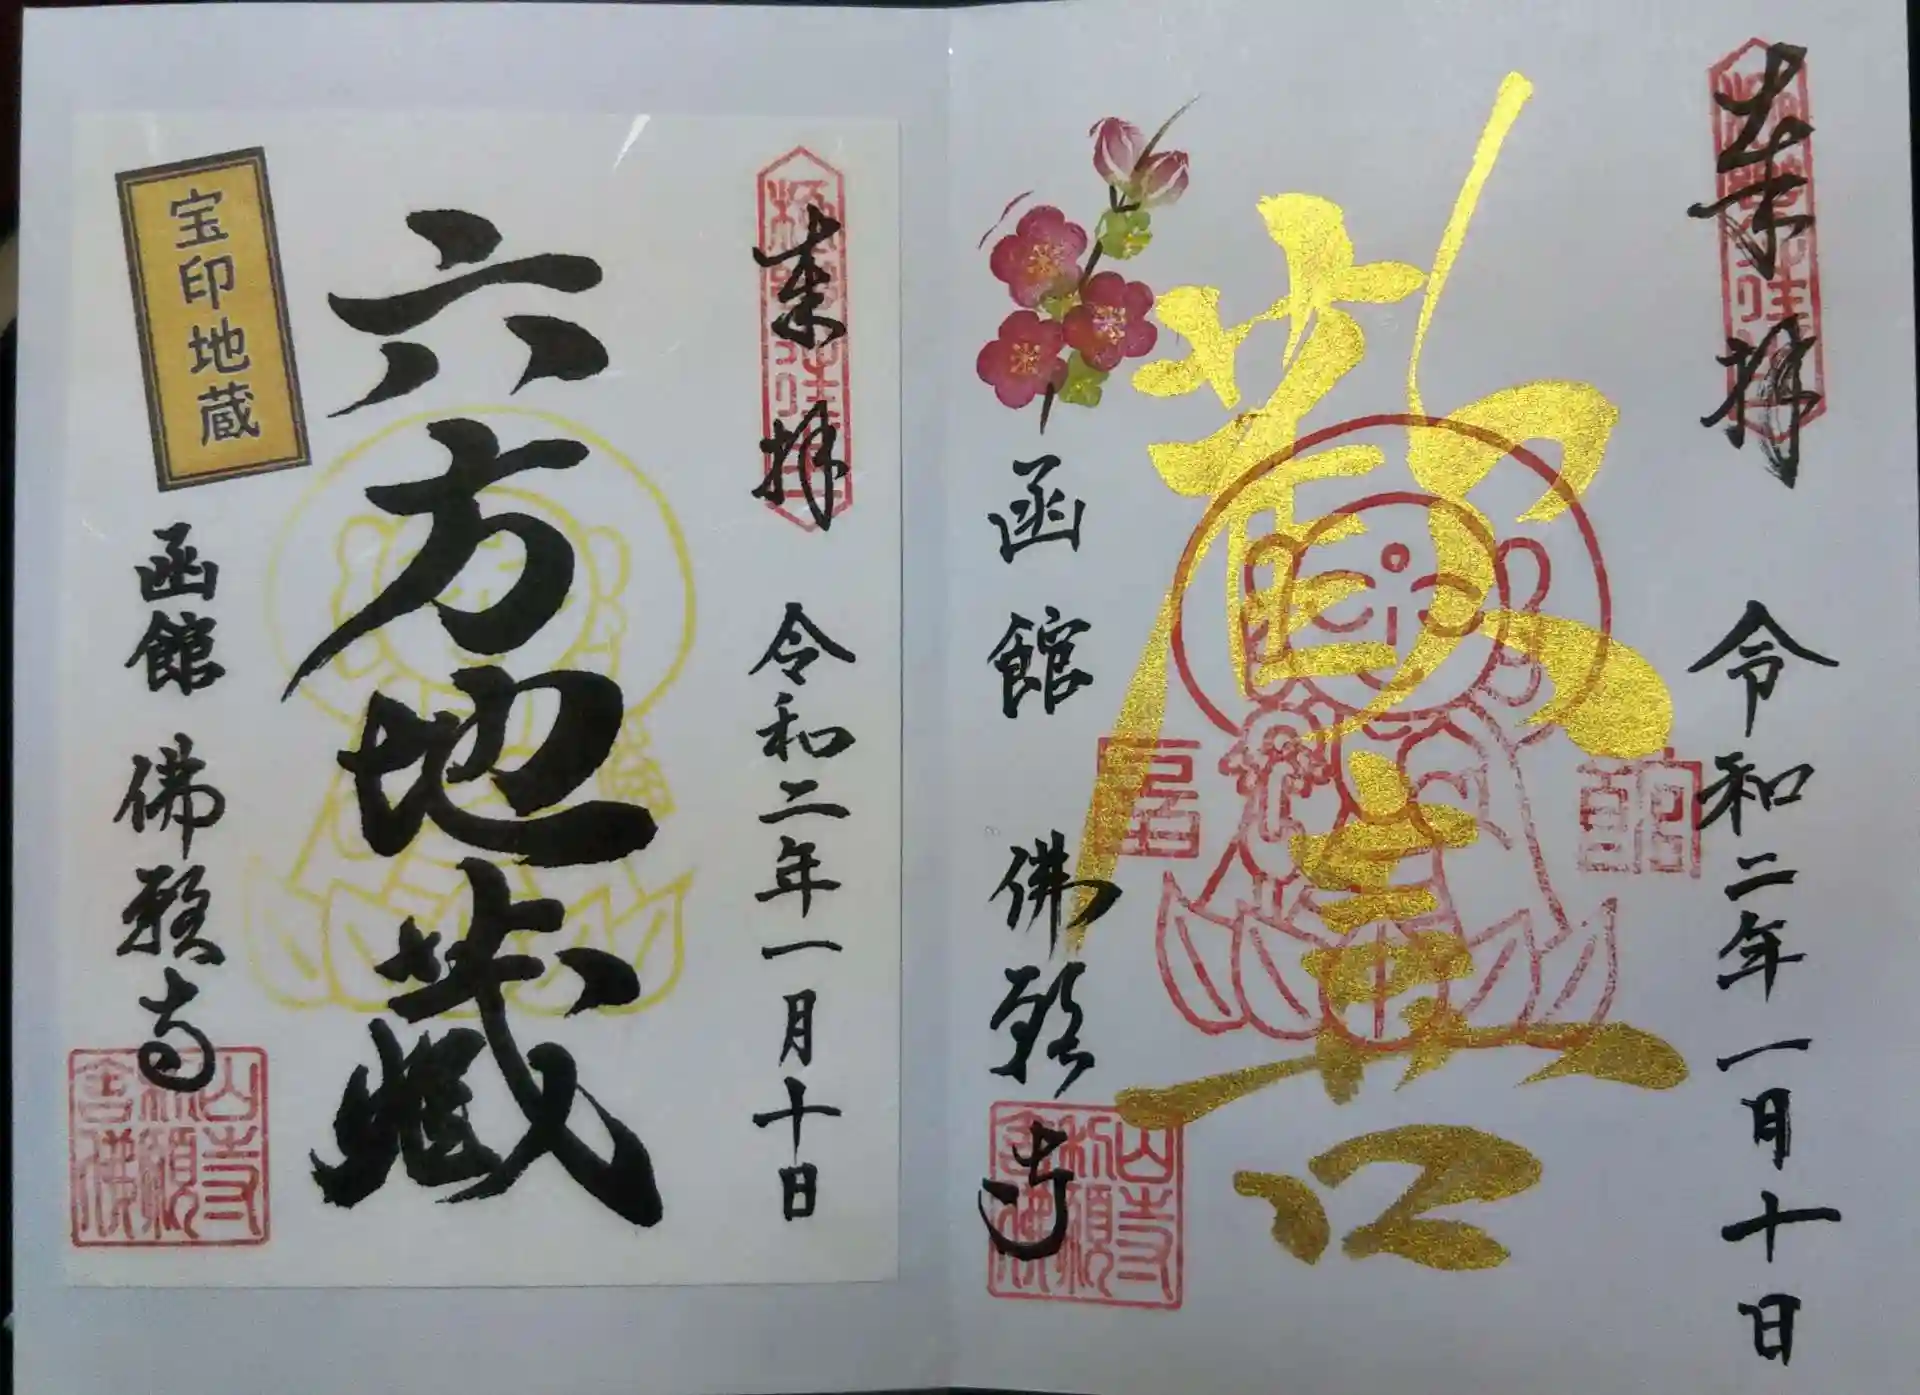 奉拝
令和二年一月十日
歡喜
函館 佛願寺
奉拝
令和二年一月十日
六方地蔵
宝印地蔵
函館 佛願寺